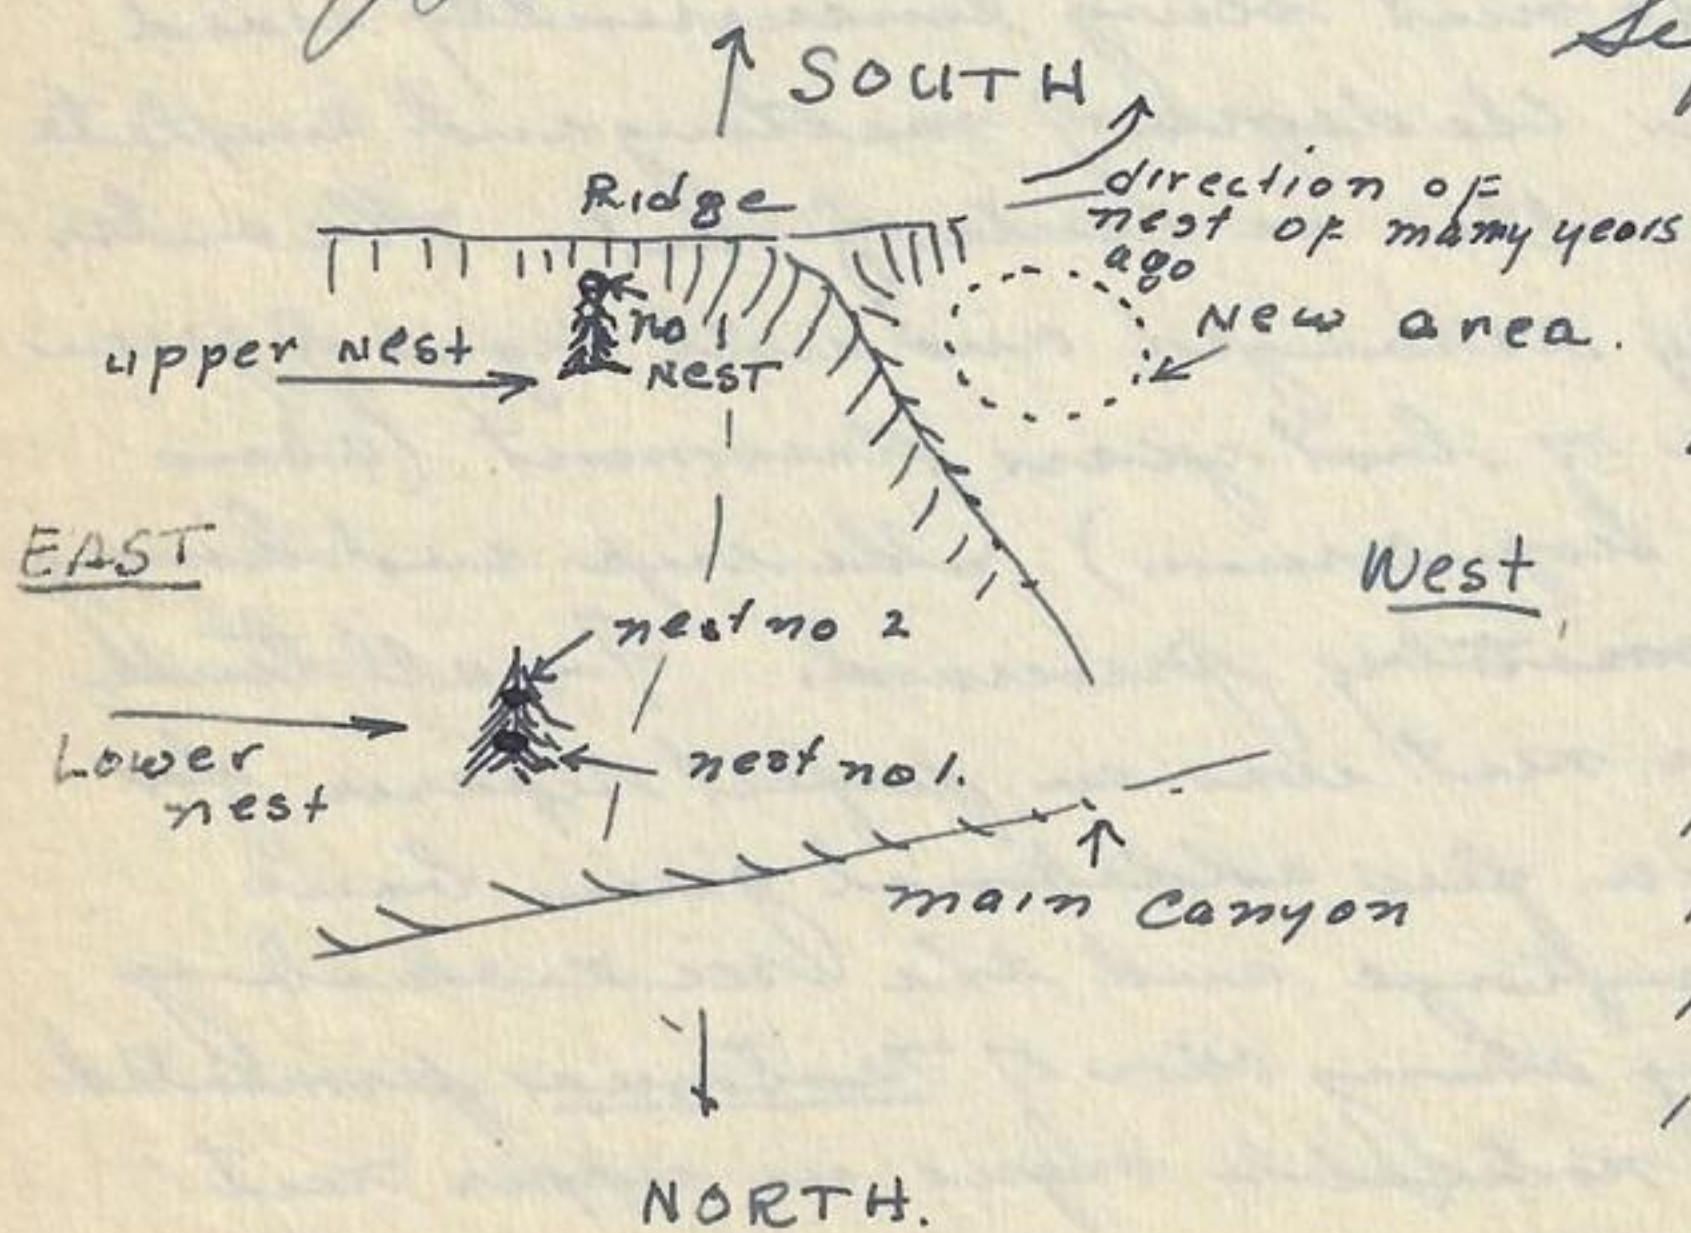 SOUTH
Ridge
direction of
nest of many years
ago
upper Nest
no 1
NEST
New area.
EAST
West
nest no 2
Lower
nest
nest no 1.
main canyon
NORTH.